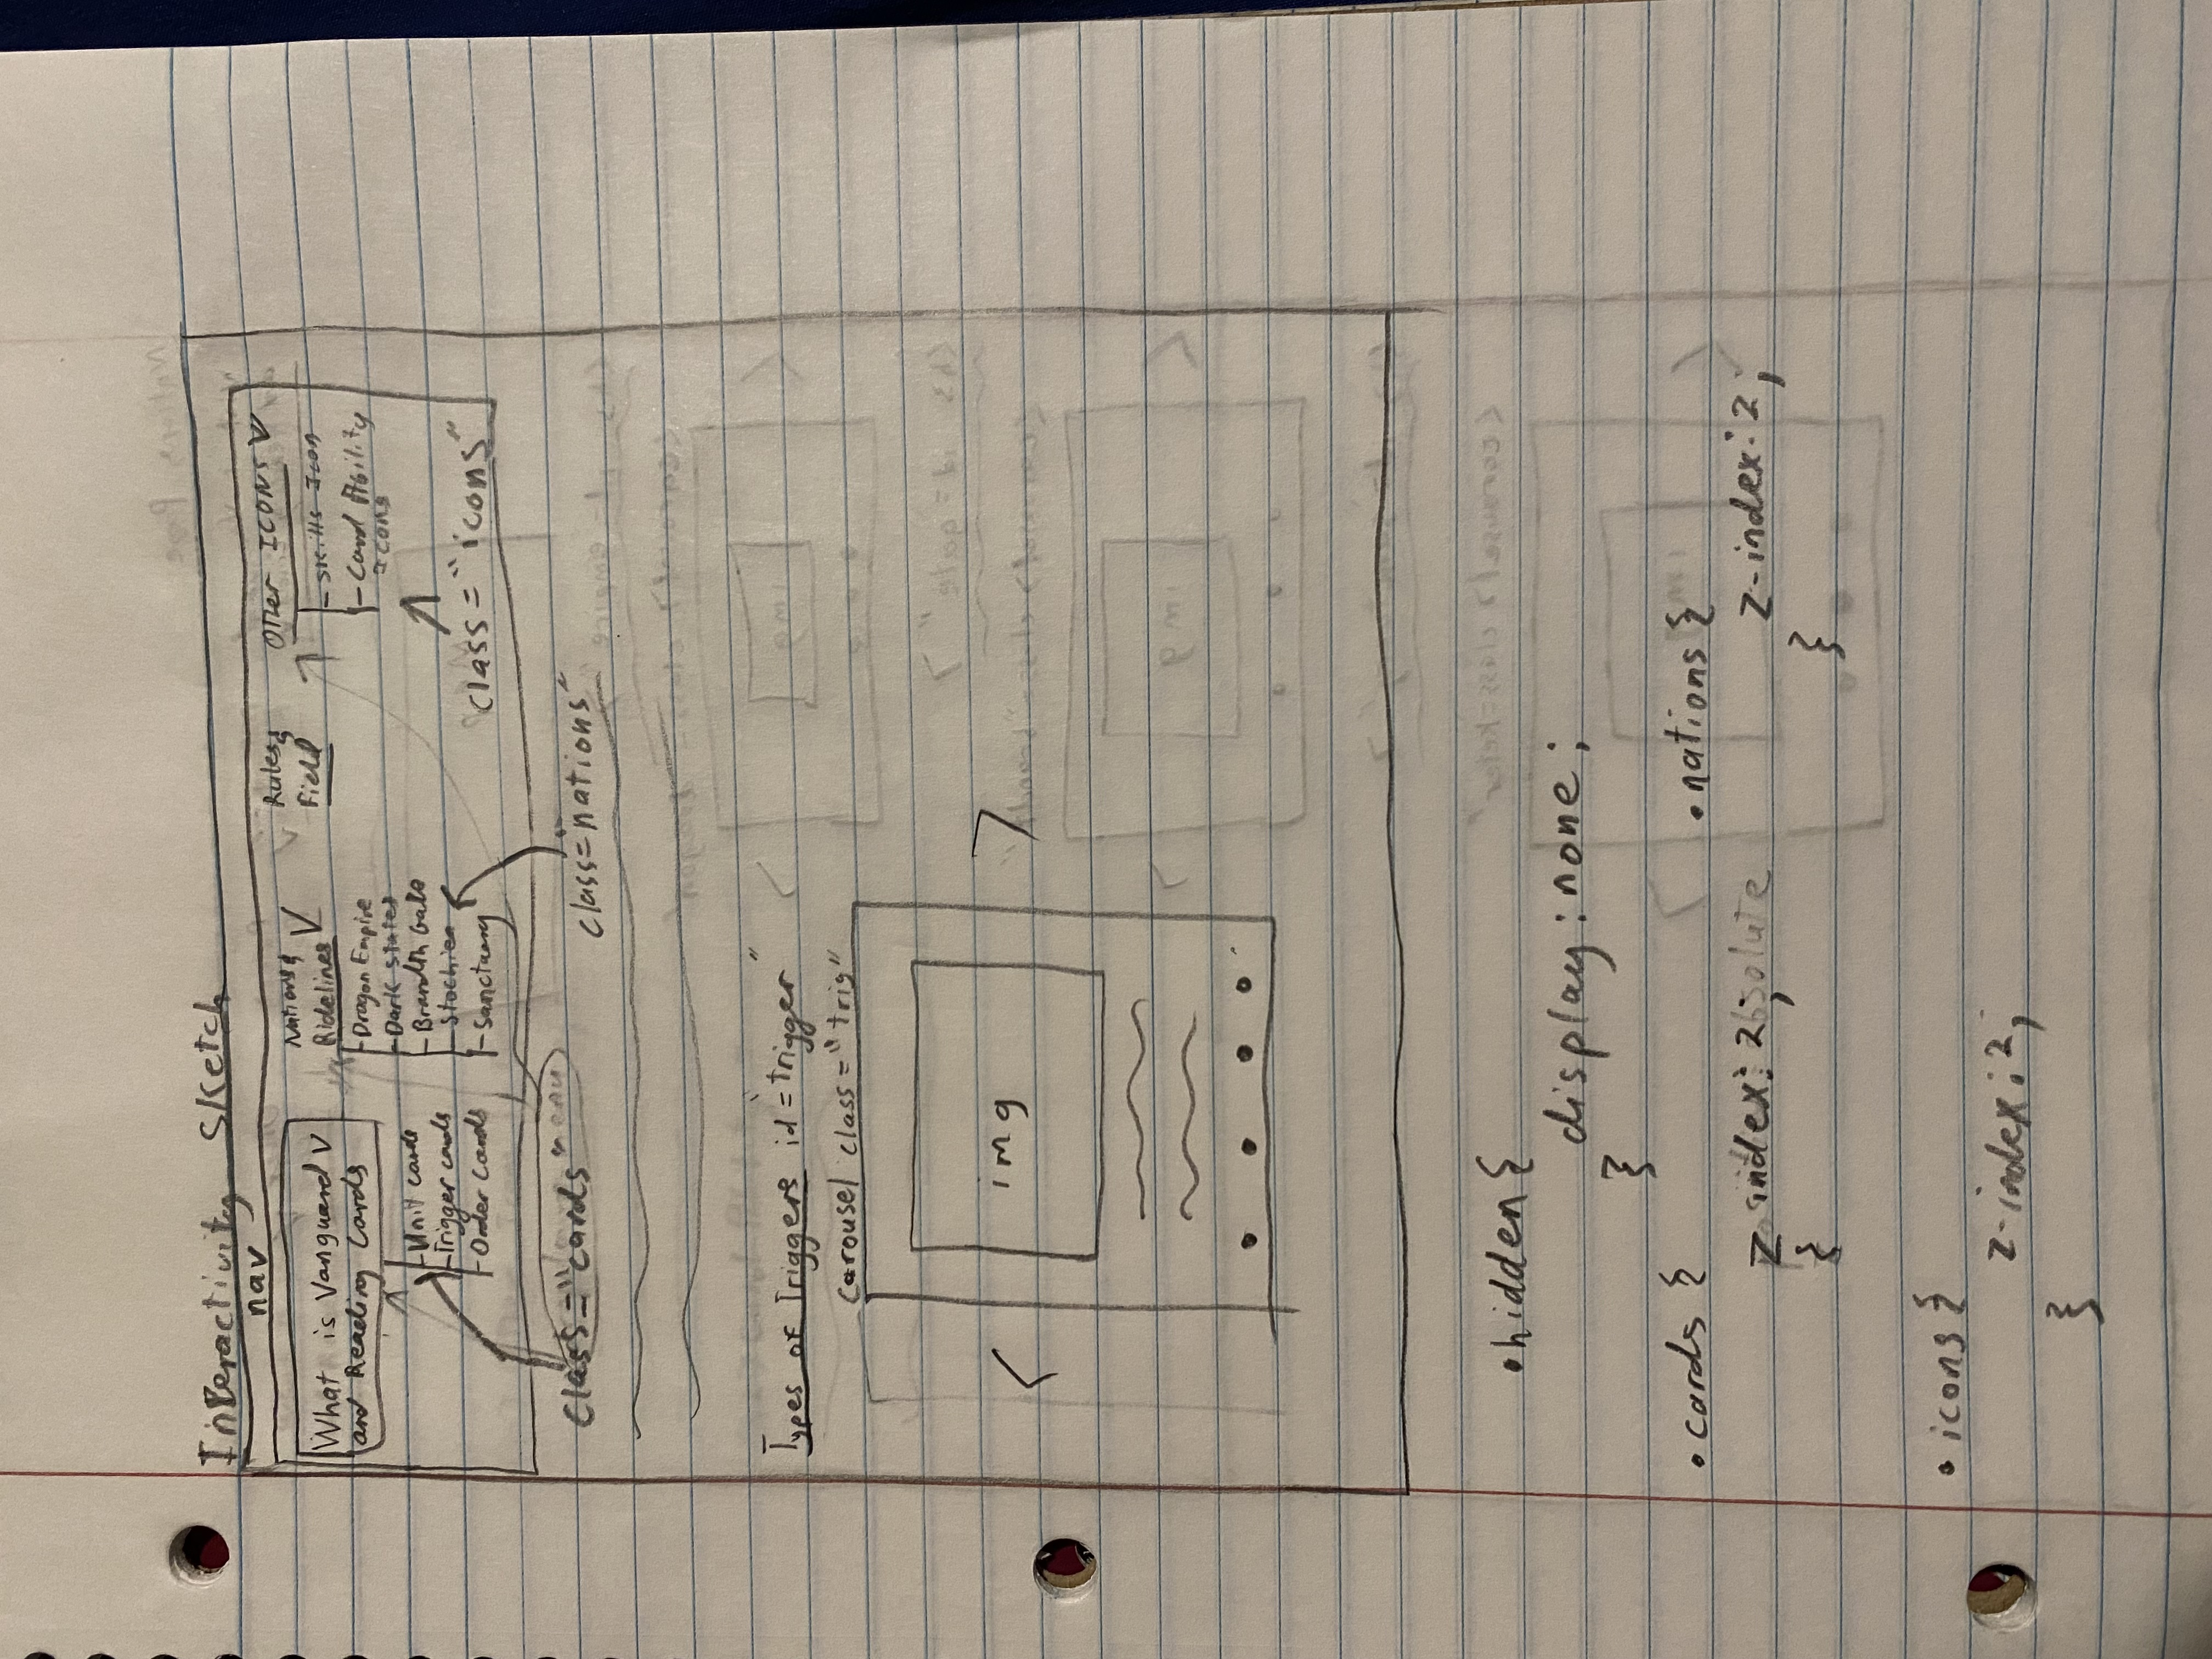 Interactivity Sketch
nav
What is Vanguard V
and Reading Cards
- Unit cards
- Trigger cards
- Order Cards
Nations & V
Ridelines
- Dragon Empire
- Dark States
- Brandth Gate
- Stochiea
- Sanctuary
Rules &
Field
Other ICONS V
- Skills Icon
- Card Ability
Icons
class="icons"
class="cards"
menu
class="nations"
Types of Triggers id="trigger"
carousel class="trig"
< img >
.hidden{
display:none;
}
.cards {
z index: 2;
{
.nations {
z-index: 2;
}
.icons {
z-index: 2;
}